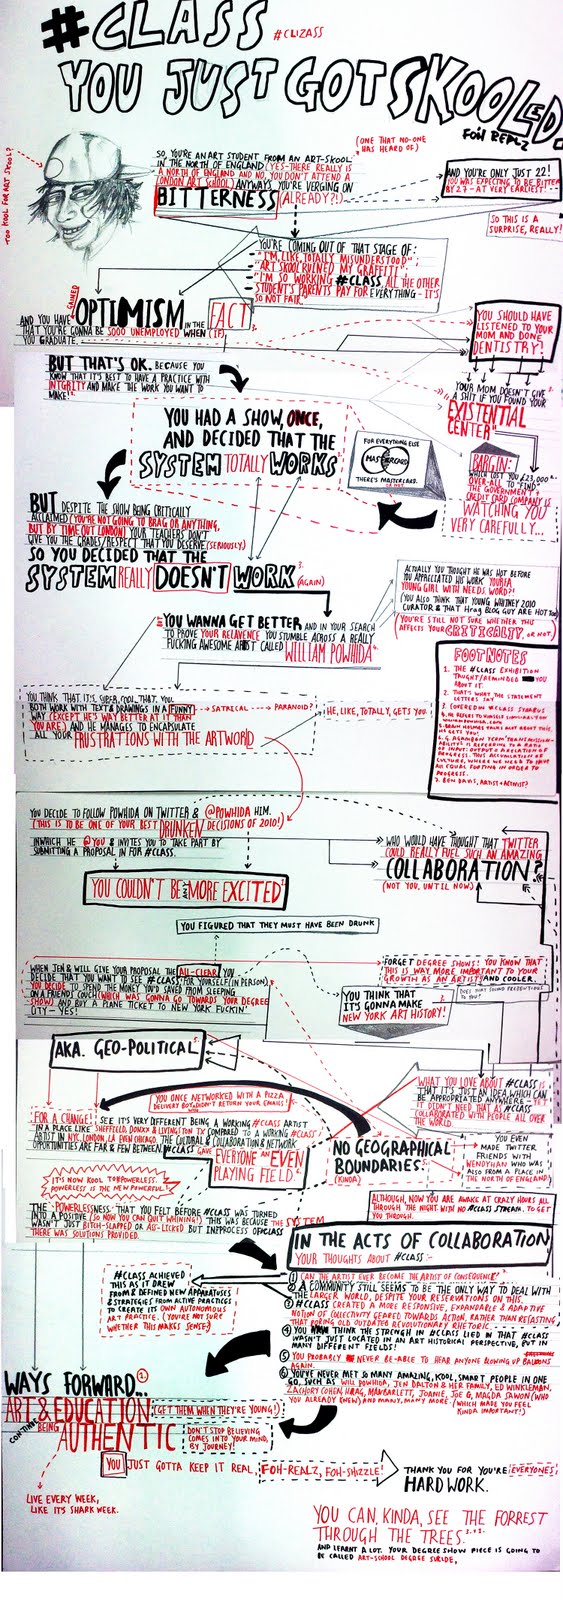 #CLASS #CLIZASS
YOU JUST GOT SKOOLED.
FOH REALZ
TOO KOOL FOR ART SKOOL?
(ONE THAT NO-ONE
HAS HEARD OF)
SO, YOU'RE AN ART STUDENT FROM AN ART-SKOOL
IN THE NORTH OF ENGLAND (YES-THERE REALLY IS
A NORTH OF ENGLAND AND NO, YOU DON'T ATTEND A
LONDON ART SCHOOL) ANYWAYS, YOU'RE VERGING ON
BITTERNESS (ALREADY?!)
AND YOU'RE ONLY JUST 22!
(YOU WAS EXPECTING TO BE BITTER
BY 27 - AT VERY EARLIEST!
SO THIS IS A
SURPRISE, REALLY!
YOU'RE COMING OUT OF THAT STAGE OF:
"I'M, LIKE, TOTALLY MISUNDERSTOOD"
"ART SKOOL RUINED MY GRAFFITI"
"I'M SO WORKING #CLASS ALL THE OTHER
STUDENT'S PARENTS PAY FOR EVERYTHING - IT'S
SO NOT FAIR"
AND YOU HAVE GAINED OPTIMISM IN THE FACT
THAT YOU'RE GONNA BE SOOO UNEMPLOYED WHEN (IF)
YOU GRADUATE.
YOU SHOULD HAVE
LISTENED TO YOUR
MOM AND DONE
DENTISTRY!
BUT THAT'S OK. BECAUSE YOU
KNOW THAT IT'S BEST TO HAVE A PRACTICE WITH
INTGRITY AND MAKE THE WORK YOU WANT TO
MAKE!
YOUR MOM DOESN'T GIVE
A SHIT IF YOU FOUND YOUR
"EXISTENTIAL
CENTER"
YOU HAD A SHOW, ONCE,
AND DECIDED THAT THE
SYSTEM TOTALLY WORKS
FOR EVERYTHING ELSE
MASTERCARD
THERE'S MASTERCARD.
OR NOT.
BARGIN:
WHICH COST YOU £23,000
OVER-ALL TO "FIND"
THE GOVERNMENT +
CREDIT CARD COMPANY IS
WATCHING YOU
VERY CAREFULLY...
BUT DESPITE THE SHOW BEING CRITICALLY
ACCLAIMED (YOU'RE NOT GOING TO BRAG OR ANYTHING,
BUT BY TIME OUT LONDON) YOUR TEACHERS DON'T
GIVE YOU THE GRADES/RESPECT THAT YOU DESERVE (SERIOUSLY)
SO YOU DECIDED THAT THE
SYSTEM REALLY DOESN'T WORK (AGAIN)
ACTUALLY YOU THOUGHT HE WAS HOT BEFORE
YOU APPRECIATED HIS WORK
YOUNG GIRL WITH NEEDS. WORD?!
(YOU ALSO THINK THAT YOUNG WHITNEY 2010
CURATOR & THAT Hrag BLOG GUY ARE HOT TOO)
(YOU'RE STILL NOT SURE WHETHER THIS
AFFECTS YOUR CRITICALITY, OR NOT.)
YOU WANNA GET BETTER AND IN YOUR SEARCH
TO PROVE YOUR RELAVENCE YOU STUMBLE ACROSS A REALLY
FUCKING AWESOME ARTIST CALLED WILLIAM POWHIDA
FOOTNOTES
1. THE #CLASS EXHIBITION
TAUGHT/REMINDED YOU
ABOUT IT.
2. THAT'S WHAT THE STATEMENT
LETTERS SAY
3. COVERED IN #CLASS SYLLABUS
7. BEN DAVIS, ARTIST + ACTIVIST?
YOU THINK THAT IT'S SUPER COOL THAT YOU
BOTH WORK WITH TEXT & DRAWINGS IN A FUNNY
WAY (EXCEPT HE'S WAY BETTER AT IT THAN
YOU ARE) AND HE MANAGES TO ENCAPSULATE
ALL YOUR FRUSTRATIONS WITH THE ARTWORLD
SATRICAL PARANOID?
HE, LIKE, TOTALLY, GETS YOU
YOU DECIDE TO FOLLOW POWHIDA ON TWITTER & @POWHIDA HIM.
(THIS IS TO BE ONE OF YOUR BEST DRUNKEN DECISIONS OF 2010!)
IN WHICH HE @YOU & INVITES YOU TO TAKE PART BY
SUBMITTING A PROPOSAL IN FOR #CLASS.
YOU COULDN'T BE ANY MORE EXCITED
WHO WOULD HAVE THOUGHT THAT TWITTER
COULD REALLY FUEL SUCH AN AMAZING
COLLABORATION?
(NOT YOU, UNTIL NOW)
YOU FIGURED THAT THEY MUST HAVE BEEN DRUNK
WHEN JEN & WILL GIVE YOUR PROPOSAL THE ALL-CLEAR YOU
DECIDE THAT YOU WANT TO SEE #CLASS FOR YOURSELF (IN PERSON)
YOU DECIDE TO SPEND THE MONEY YOU'D SAVED FROM SLEEPING
ON A FRIENDS COUCH (WHICH WAS GONNA GO TOWARDS YOUR DEGREE
SHOW) AND BUY A PLANE TICKET TO NEW YORK FUCKIN'
CITY - YES!
FORGET DEGREE SHOWS! YOU KNOW THAT
THIS IS WAY MORE IMPORTANT TO YOUR
GROWTH AS AN ARTIST AND COOLER.
YOU THINK THAT
IT'S GONNA MAKE
NEW YORK ART HISTORY!
DOES THAT SOUND PRETENTIOUS
TO YOU?
AKA. GEO-POLITICAL
WHAT YOU LOVE ABOUT #CLASS IS
THAT IT'S JUST AN IDEA WHICH CAN
BE APPROPRIATED ANYWHERE - YET
IT DIDN'T NEED THAT AS #CLASS
COLLABORATED WITH PEOPLE ALL OVER
THE WORLD.
YOU ONCE NETWORKED WITH A PIZZA
DELIVERY BOY
FOR A CHANGE! SEE IT'S VERY DIFFERENT BEING A WORKING #CLASS ARTIST
IN A PLACE LIKE SHEFFIELD, DONXX & LIVINGSTON TX COMPARED TO A WORKING #CLASS
ARTIST IN NYC, LONDON, LA EVEN CHICAGO. THE CULTURAL & COLLABORATION & NETWORK
OPPORTUNITIES ARE FAR & FEW BETWEEN. #CLASS GAVE
EVERYONE AN EVEN
PLAYING FIELD
NO GEOGRAPHICAL
BOUNDARIES
(KINDA)
YOU EVEN
MADE TWITTER
FRIENDS WITH
WENDYHAN WHO WAS
ALSO FROM A PLACE IN
THE NORTH OF ENGLAND)
IT'S NOW KOOL TO B POWERLESS.
POWERLESS IS THE NEW POWERFUL.
ALTHOUGH, NOW YOU ARE AWAKE AT CRAZY HOURS ALL
THROUGH THE NIGHT WITH NO #CLASS STREAM. TO GET
YOU THROUGH.
THE 'POWERLESSNESS' THAT YOU FELT BEFORE #CLASS WAS TURNED
INTO A POSITIVE (SO NOW YOU CAN QUIT WHINING!) THIS WAS BECAUSE THE SYSTEM
WASN'T JUST BITCH-SLAPPED OR ASS-LICKED BUT IN PROCESS OF #CLASS
THERE WAS SOLUTIONS PROVIDED.
IN THE ACTS OF COLLABORATION
YOUR THOUGHTS ABOUT #CLASS:-
#CLASS ACHIEVED
THIS AS IT DREW
FROM & DEFINED NEW APPARATUSES
& STRATEGIES FROM ACTIVE PRACTICES
TO CREATE ITS OWN AUTONOMOUS
ART PRACTICE. (YOU'RE NOT SURE
WHETHER THIS MAKES SENSE)
1 CAN THE ARTIST EVER BECOME THE ARTIST OF CONSEQUENCE?
2 A COMMUNITY STILL SEEMS TO BE THE ONLY WAY TO DEAL WITH
THE LARGER WORLD, DESPITE YOUR RESERVATIONS ON THIS.
3 #CLASS CREATED A MORE RESPONSIVE, EXPANDABLE & ADAPTIVE
NOTION OF COLLECTIVITY GEARED TOWARDS ACTION, RATHER THAN REHASTING
THAT BORING OLD OUTDATED REVOLUTIONARY RHETORIC.
4 YOU THINK THE STRENGTH IN #CLASS LIED IN THAT #CLASS
WASN'T JUST LOCATED IN AN ART HISTORICAL PERSPECTIVE, PUT IN
MANY DIFFERENT FIELDS!
5 YOU PROBABLY NEVER BE-ABLE TO HEAR ANYONE BLOWING UP BALOONS
AGAIN.
6 YOU'VE NEVER MET SO MANY AMAZING, KOOL, SMART PEOPLE IN ONE
GO. SUCH AS WILL POWHIDA, JEN DALTON & HER FAMILY, ED WINKLEMAN,
ZACHORY COHEN, HRAG, MAN BARLETT, JOANIE, JOE G, MAGDA SAWON (WHO
YOU ALREADY KNEW) AND MANY, MANY MORE. (WHICH MADE YOU FEEL
KINDA IMPORTANT!)
WAYS FORWARD...
ART & EDUCATION (GET THEM WHEN THEY'RE YOUNG!)
CONTINUE BEING AUTHENTIC
DON'T STOP BELIEVING
COMES INTO YOUR MIND,
BY JOURNEY!
YOU JUST GOTTA KEEP IT REAL, FOH-REALZ, FOH-SHIZZLE!
THANK YOU FOR YOU'RE EVERYONES
HARD WORK.
LIVE EVERY WEEK,
LIKE IT'S SHARK WEEK.
YOU CAN, KINDA, SEE THE FORREST
THROUGH THE TREES.
AND LEARNT A LOT. YOUR DEGREE SHOW PIECE IS GOING TO
BE CALLED ART-SCHOOL DEGREE SUCIDE.